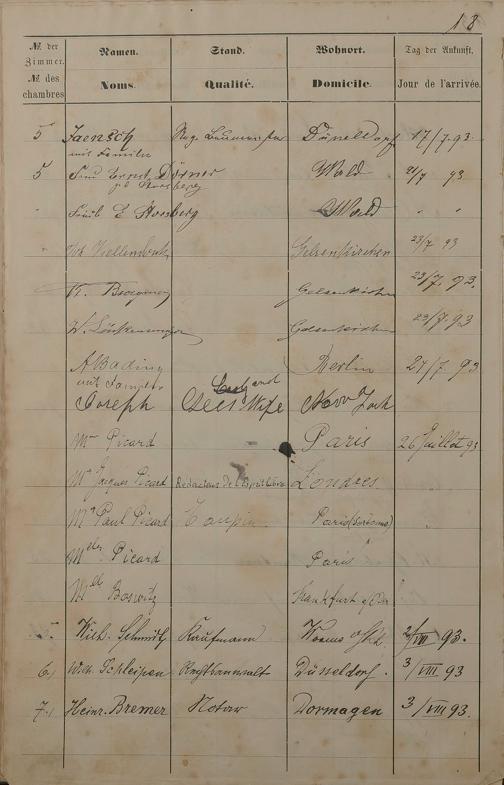 18
№ der Zimmer. Namen. Stand. Wohnort. Tag der Ankunft.
№ des chambres Noms. Qualité. Domicile. Jour de l'arrivée.
5 Jaensch Reg. Baumeister Düsseldorf 17/7. 93.
mit Familie
5 Frau Ernst Dörner Wald 21/7 93
Fräul E Wald " "
Gelsenkirchen 23/7 93
Gelsenkirchen 23/7. 93.
W. Gelsenkirchen 23/7. 93
A Bading Berlin 24/7. 93
mit
Joseph and Wife New York
Mr Picard Paris 26 Juillet 93
Mr Jacques Picard Rédacteur de l'Esprit Libre Londres
Mr Paul Picard Paris
Melle Picard Paris
Frankfurt a/Oder
Wilh. Schmidt Kaufmann Worms 2/VIII 93.
6. Wilh. Schleipen Rechtsanwalt Düsseldorf. 3/VIII 93
7. Heinr. Bremer Notar Dormagen 3/VIII 93.